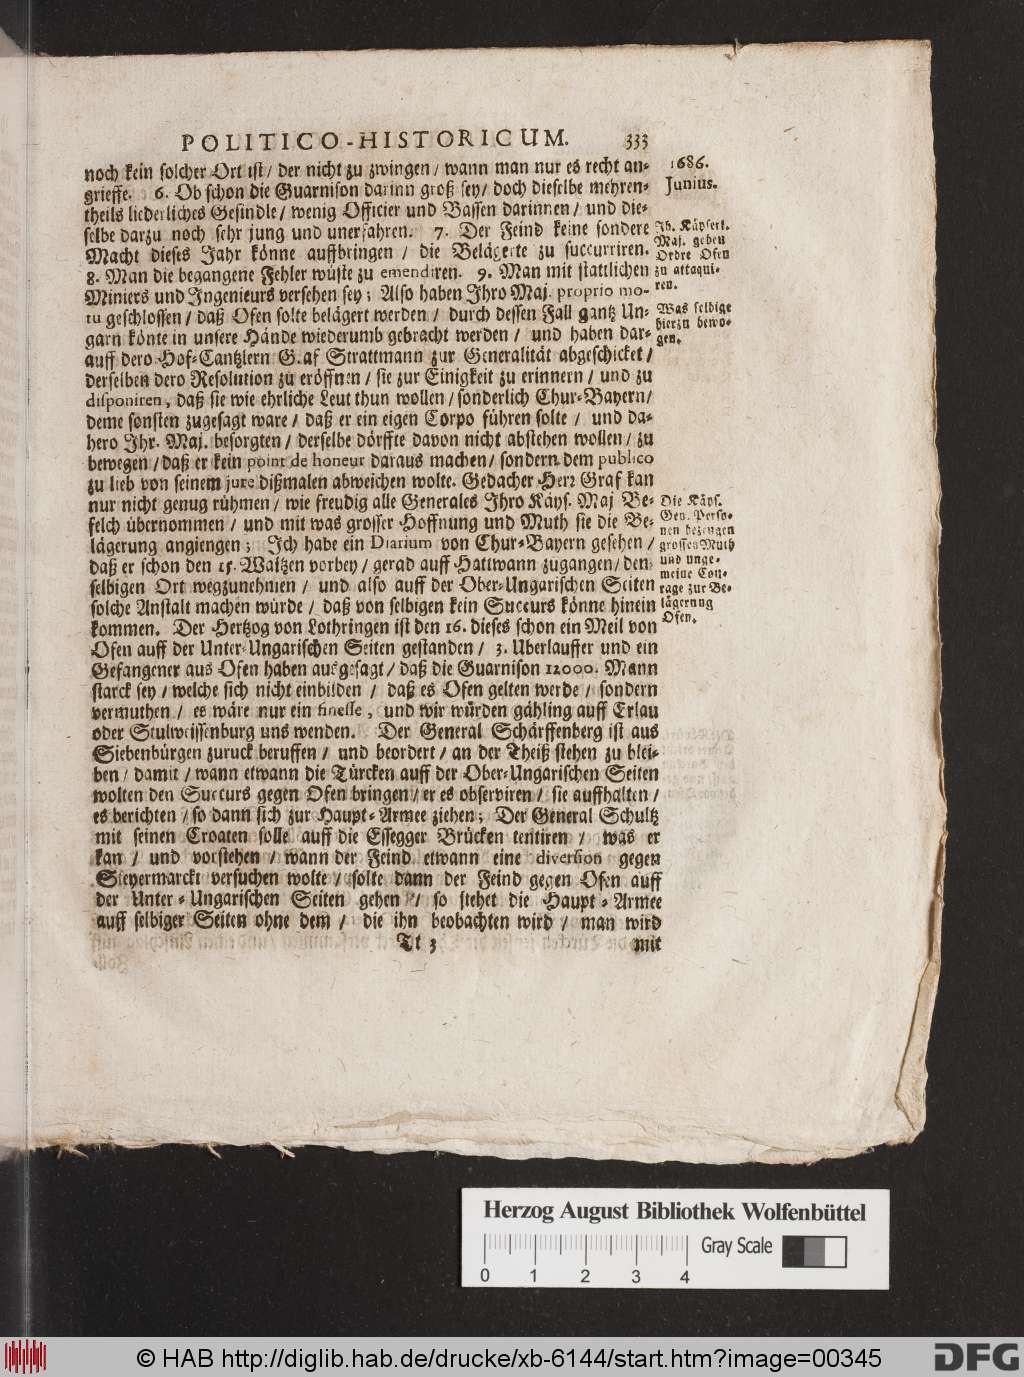 POLITICO-HISTORICUM. 333
noch kein solcher Ort ist / der nicht zu zwingen / wann man nur es recht an-
grieffe. 6. Ob schon die Guarnison darinn groß sey / doch dieselbe mehren-
theils liederliches Gesindle / wenig Officier und Bassen darinnen / und die-
selbe darzu noch sehr jung und unerfahren. 7. Der Feind keine sondere
Macht dieses Jahr könne auffbringen / die Belägerte zu succurriren.
8. Man die begangene Fehler wüste zu emendiren. 9. Man mit stattlichen
Miniers und Ingenieurs versehen sey; Also haben Ihro Maj. proprio mo-
tu geschlossen / daß Ofen solte belägert werden / durch dessen Fall gantz Un-
garn könte in unsere Hände wiederumb gebracht werden / und haben dar-
auff dero Hof-Cantzlern G.af Strattmann zur Generalität abgeschicket /
derselben dero Resolution zu eröffnen / sie zur Einigkeit zu erinnern / und zu
disponiren, daß sie wie ehrliche Leut thun wollen / sonderlich Chur-Bayern /
deme sonsten zugesagt ware / daß er ein eigen Corpo führen solte / und da-
hero Ihr. Maj. besorgten / derselbe dörffte davon nicht abstehen wollen / zu
bewegen / daß er kein point de honeur daraus machen / sondern dem publico
zu lieb von seinem jure dißmalen abweichen wolte. Gedacher Herr Graf kan
nur nicht genug rühmen / wie freudig alle Generales Ihro Käys. Maj Be-
felch übernommen / und mit was grosser Hoffnung und Muth sie die Be-
lägerung angiengen; Ich habe ein Diarium von Chur-Bayern gesehen /
daß er schon den 15. Waitzen vorbey / gerad auff Hattwann zugangen / den
selbigen Ort wegzunehmen / und also auff der Ober-Ungarischen Seiten
solche Anstalt machen würde / daß von selbigen kein Succurs könne hinein
kommen. Der Hertzog von Lothringen ist den 16. dieses schon ein Meil von
Ofen auff der Unter-Ungarischen Seiten gestanden / 3. Uberlauffer und ein
Gefangener aus Ofen haben ausgesagt / daß die Guarnison 12000. Mann
starck sey / welche sich nicht einbilden / daß es Ofen gelten werde / sondern
vermuthen / es wäre nur ein finesse, und wir würden gähling auff Erlau
oder Stulweissenburg uns wenden. Der General Schärffenberg ist aus
Siebenbürgen zuruck beruffen / und beordert / an der Theiß stehen zu blei-
ben / damit / wann etwann die Türcken auff der Ober-Ungarischen Seiten
wolten den Succurs gegen Ofen bringen / er es observiren / sie auffhalten /
es berichten / so dann sich zur Haupt-Armee ziehen; Der General Schultz
mit seinen Croaten solle auff die Essegger Brücken tentiren / was er
kan / und vorstehen / wann der Feind etwann eine diversion gegen
Steyermarckt versuchen wolte / solte dann der Feind gegen Ofen auff
der Unter-Ungarischen Seiten gehen / so stehet die Haupt-Armee
auff selbiger Seiten ohne dem / die ihn beobachten wird / man wird
Tt 3 mit
1686.
Junius.
Ih. Käyserl.
Maj. geben
Ordre Ofen
zu attaqui-
ren.
Was selbige
hierzu bewo-
gen.
Die Käys.
Gen. Perso-
nen bezeugen
grossen Muth
und unge-
meine Cou-
rage zur Be-
lägerung
Ofen.
Herzog August Bibliothek Wolfenbüttel
Gray Scale
0 1 2 3 4
© HAB http://diglib.hab.de/drucke/xb-6144/start.htm?image=00345
DFG